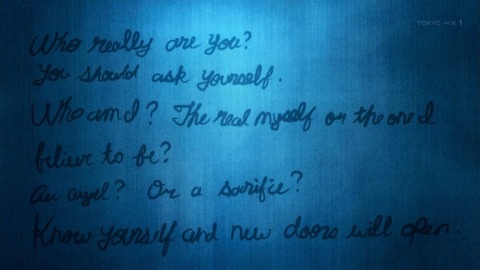 TOKYO MX 1
Who really are you?
You should ask yourself.
Who am I? The real myself or the one I
believe to be?
An angel? Or a sacrifice?
Know yourself and new doors will open.